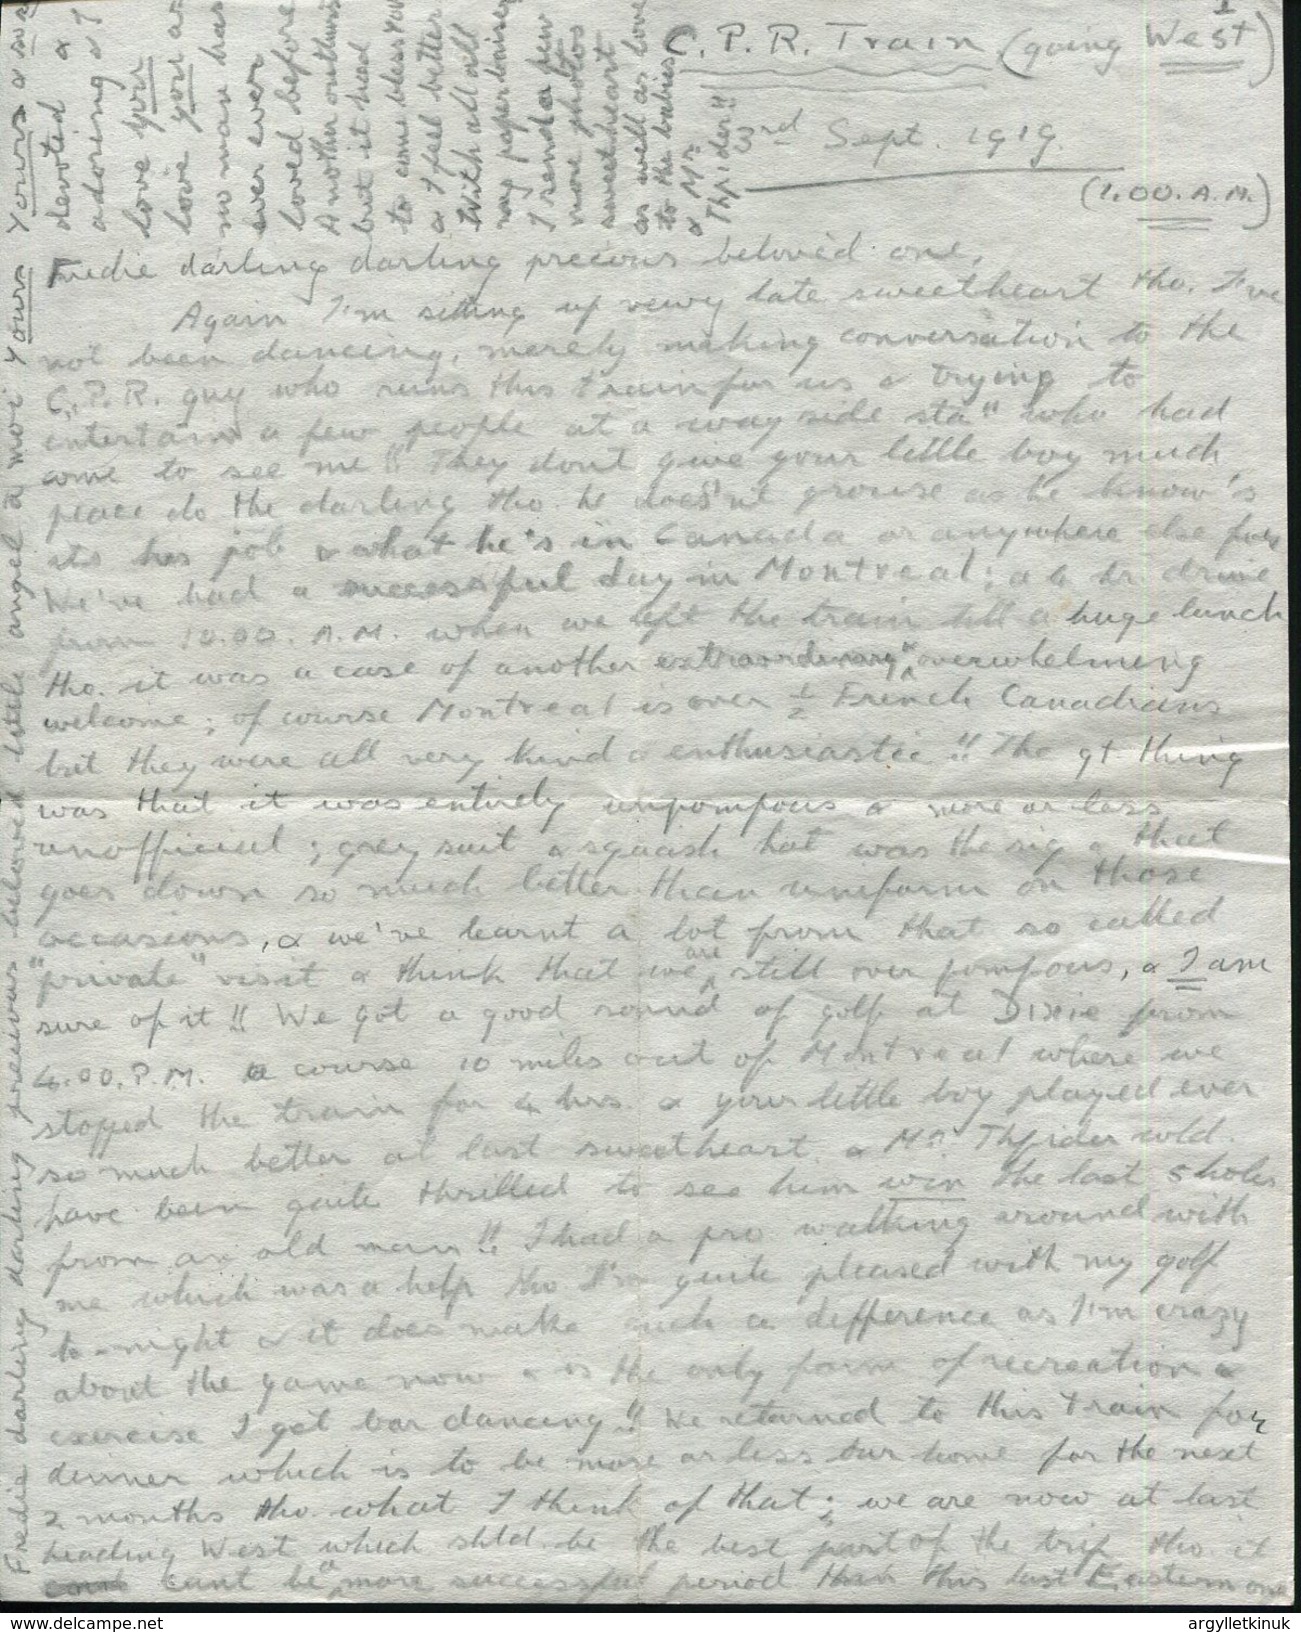 1
C. P. R. Train (going West)
3rd Sept. 1919.
(1.00. A.M.)
Fredie darling darling precious beloved one,
Again I'm sitting up vewy late sweetheart tho. I've
not been dancing, merely making conversation to the
C.P.R. guy who runs this train for us & trying to
entertain a few people at a way side sta" who had
come to see me!! They dont give your little boy much
peace do the darling tho. he does'nt grouse as he know's
its his job & what he's in Canada or anywhere else for
We've had a successful day in Montreal; a 4 hr. drive
from 10.00. A.M. when we left the train till a huge lunch
tho. it was a case of another extraordinary overwhelming
welcome; of course Montreal is over ½ French Canadians
but they were all very kind & enthusiastic!! The gt thing
was that it was entirely unpompous & more or less
unofficial; grey suit & squash hat was the rig & that
goes down so much better than uniform on those
occasions, & we've learnt a lot from that so called
"private" visit & think that we are still over pompous, & I am
sure of it!! We got a good round of golf at Dixie from
4.00. P.M. a course 10 miles out of Montreal where we
stopped the train for 4 hrs. & your little boy played ever
so much better at last sweetheart & Mr. Thpider wld.
have been quite thrilled to see him win the last 5 holes
from an old man!! I had a pro walking around with
me which was a help tho. I'm quite pleased with my golf
to-night & it does make such a difference as I'm crazy
about the game now & is the only form of recreation &
exercise I get bar dancing!! We returned to this train for
dinner which is to be more or less our home for the next
2 months tho. what I think of that; we are now at last
heading West which shld. be the best part of the trip tho. it
cant be a more successful period than this last Eastern one
Fredie darling darling precious beloved little angel à moi Yours
Yours & my
devoted & I
adoring & I
love you
love you as
no man has
ever ever
loved before
Another outburst
but it had
to come bless you
& I feel better
With all all
my paper baisers
I send a few
more photos
sweetheart
as well as love
to the babies
& Mr.
Thpider!!
argylletkinuk